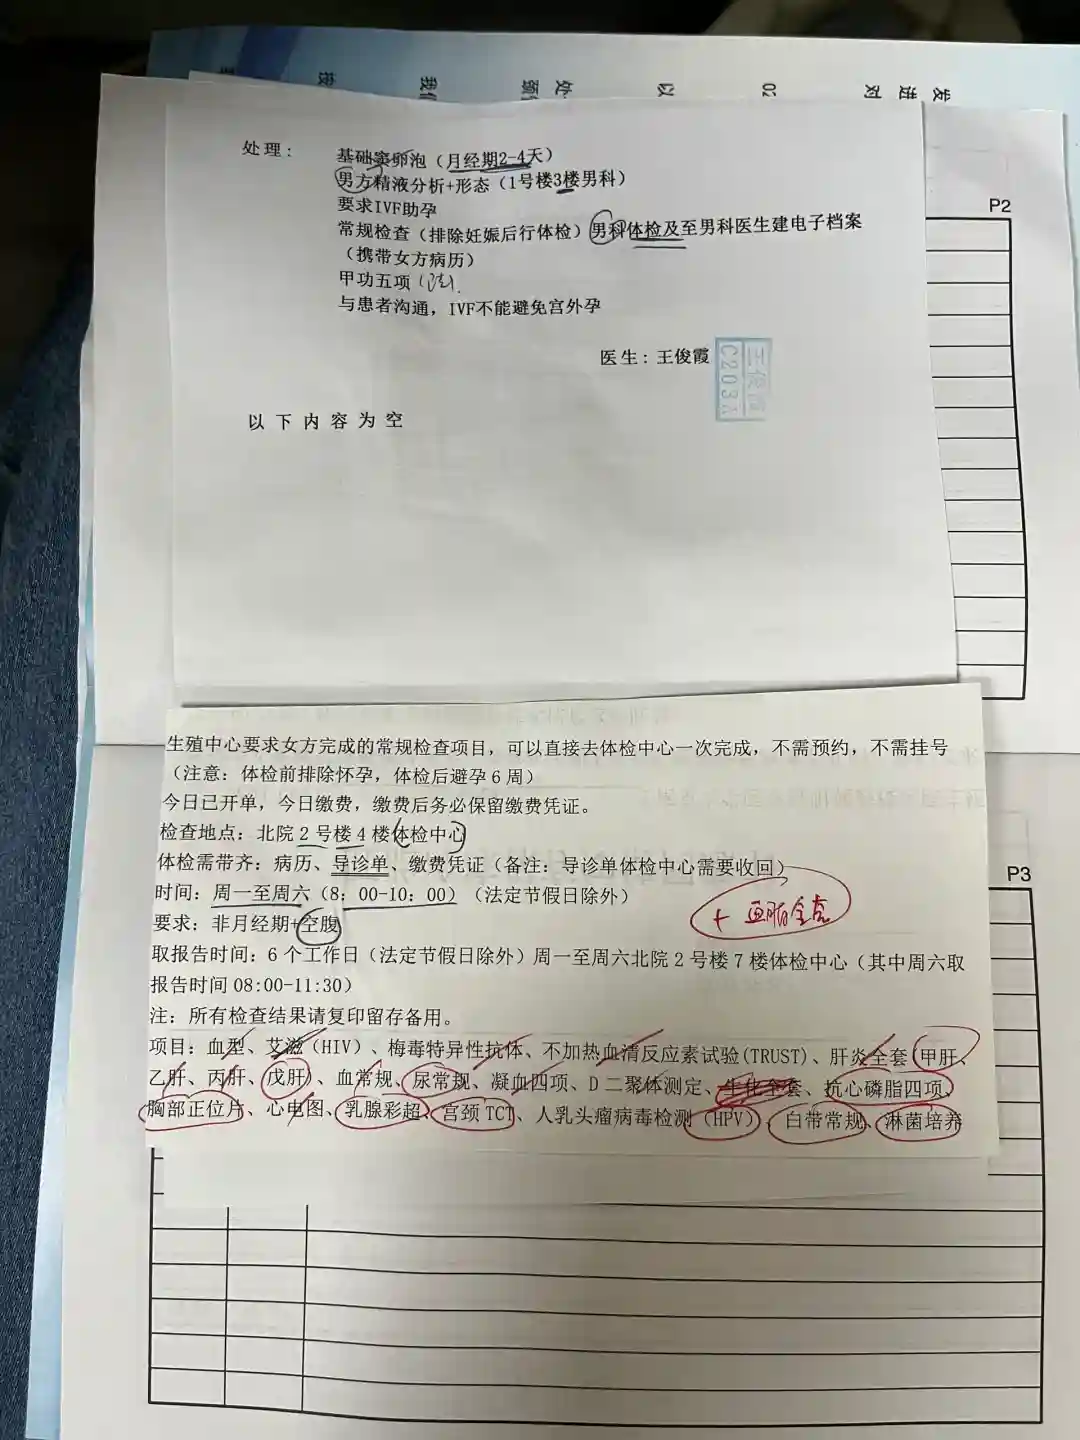 发 进 对 02 以 处 我 按
P2
处理： 基础窦卵泡（月经期2-4天）
男方精液分析+形态（1号楼3楼男科）
要求IVF助孕
常规检查（排除妊娠后行体检）男科体检及至男科医生建电子档案
（携带女方病历）
甲功五项
与患者沟通，IVF不能避免宫外孕
医生：王俊霞
王俊霞
C203A
以下内容为空
生殖中心要求女方完成的常规检查项目，可以直接去体检中心一次完成，不需预约，不需挂号
（注意：体检前排除怀孕，体检后避孕6周）
今日已开单，今日缴费，缴费后务必保留缴费凭证。
检查地点：北院2号楼4楼体检中心
体检需带齐：病历、导诊单、缴费凭证（备注：导诊单体检中心需要收回）
P3
时间：周一至周六（8：00-10：00）（法定节假日除外）
+
要求：非月经期+空腹
取报告时间：6个工作日（法定节假日除外）周一至周六北院2号楼7楼体检中心（其中周六取
报告时间08:00-11:30）
注：所有检查结果请复印留存备用。
项目：血型、艾滋（HIV）、梅毒特异性抗体、不加热血清反应素试验(TRUST)、肝炎全套(甲肝、
乙肝、丙肝、戊肝）、血常规、尿常规、凝血四项、D二聚体测定、生化全套、抗心磷脂四项、
胸部正位片、心电图、乳腺彩超、宫颈TCT、人乳头瘤病毒检测（HPV）、白带常规、淋菌培养